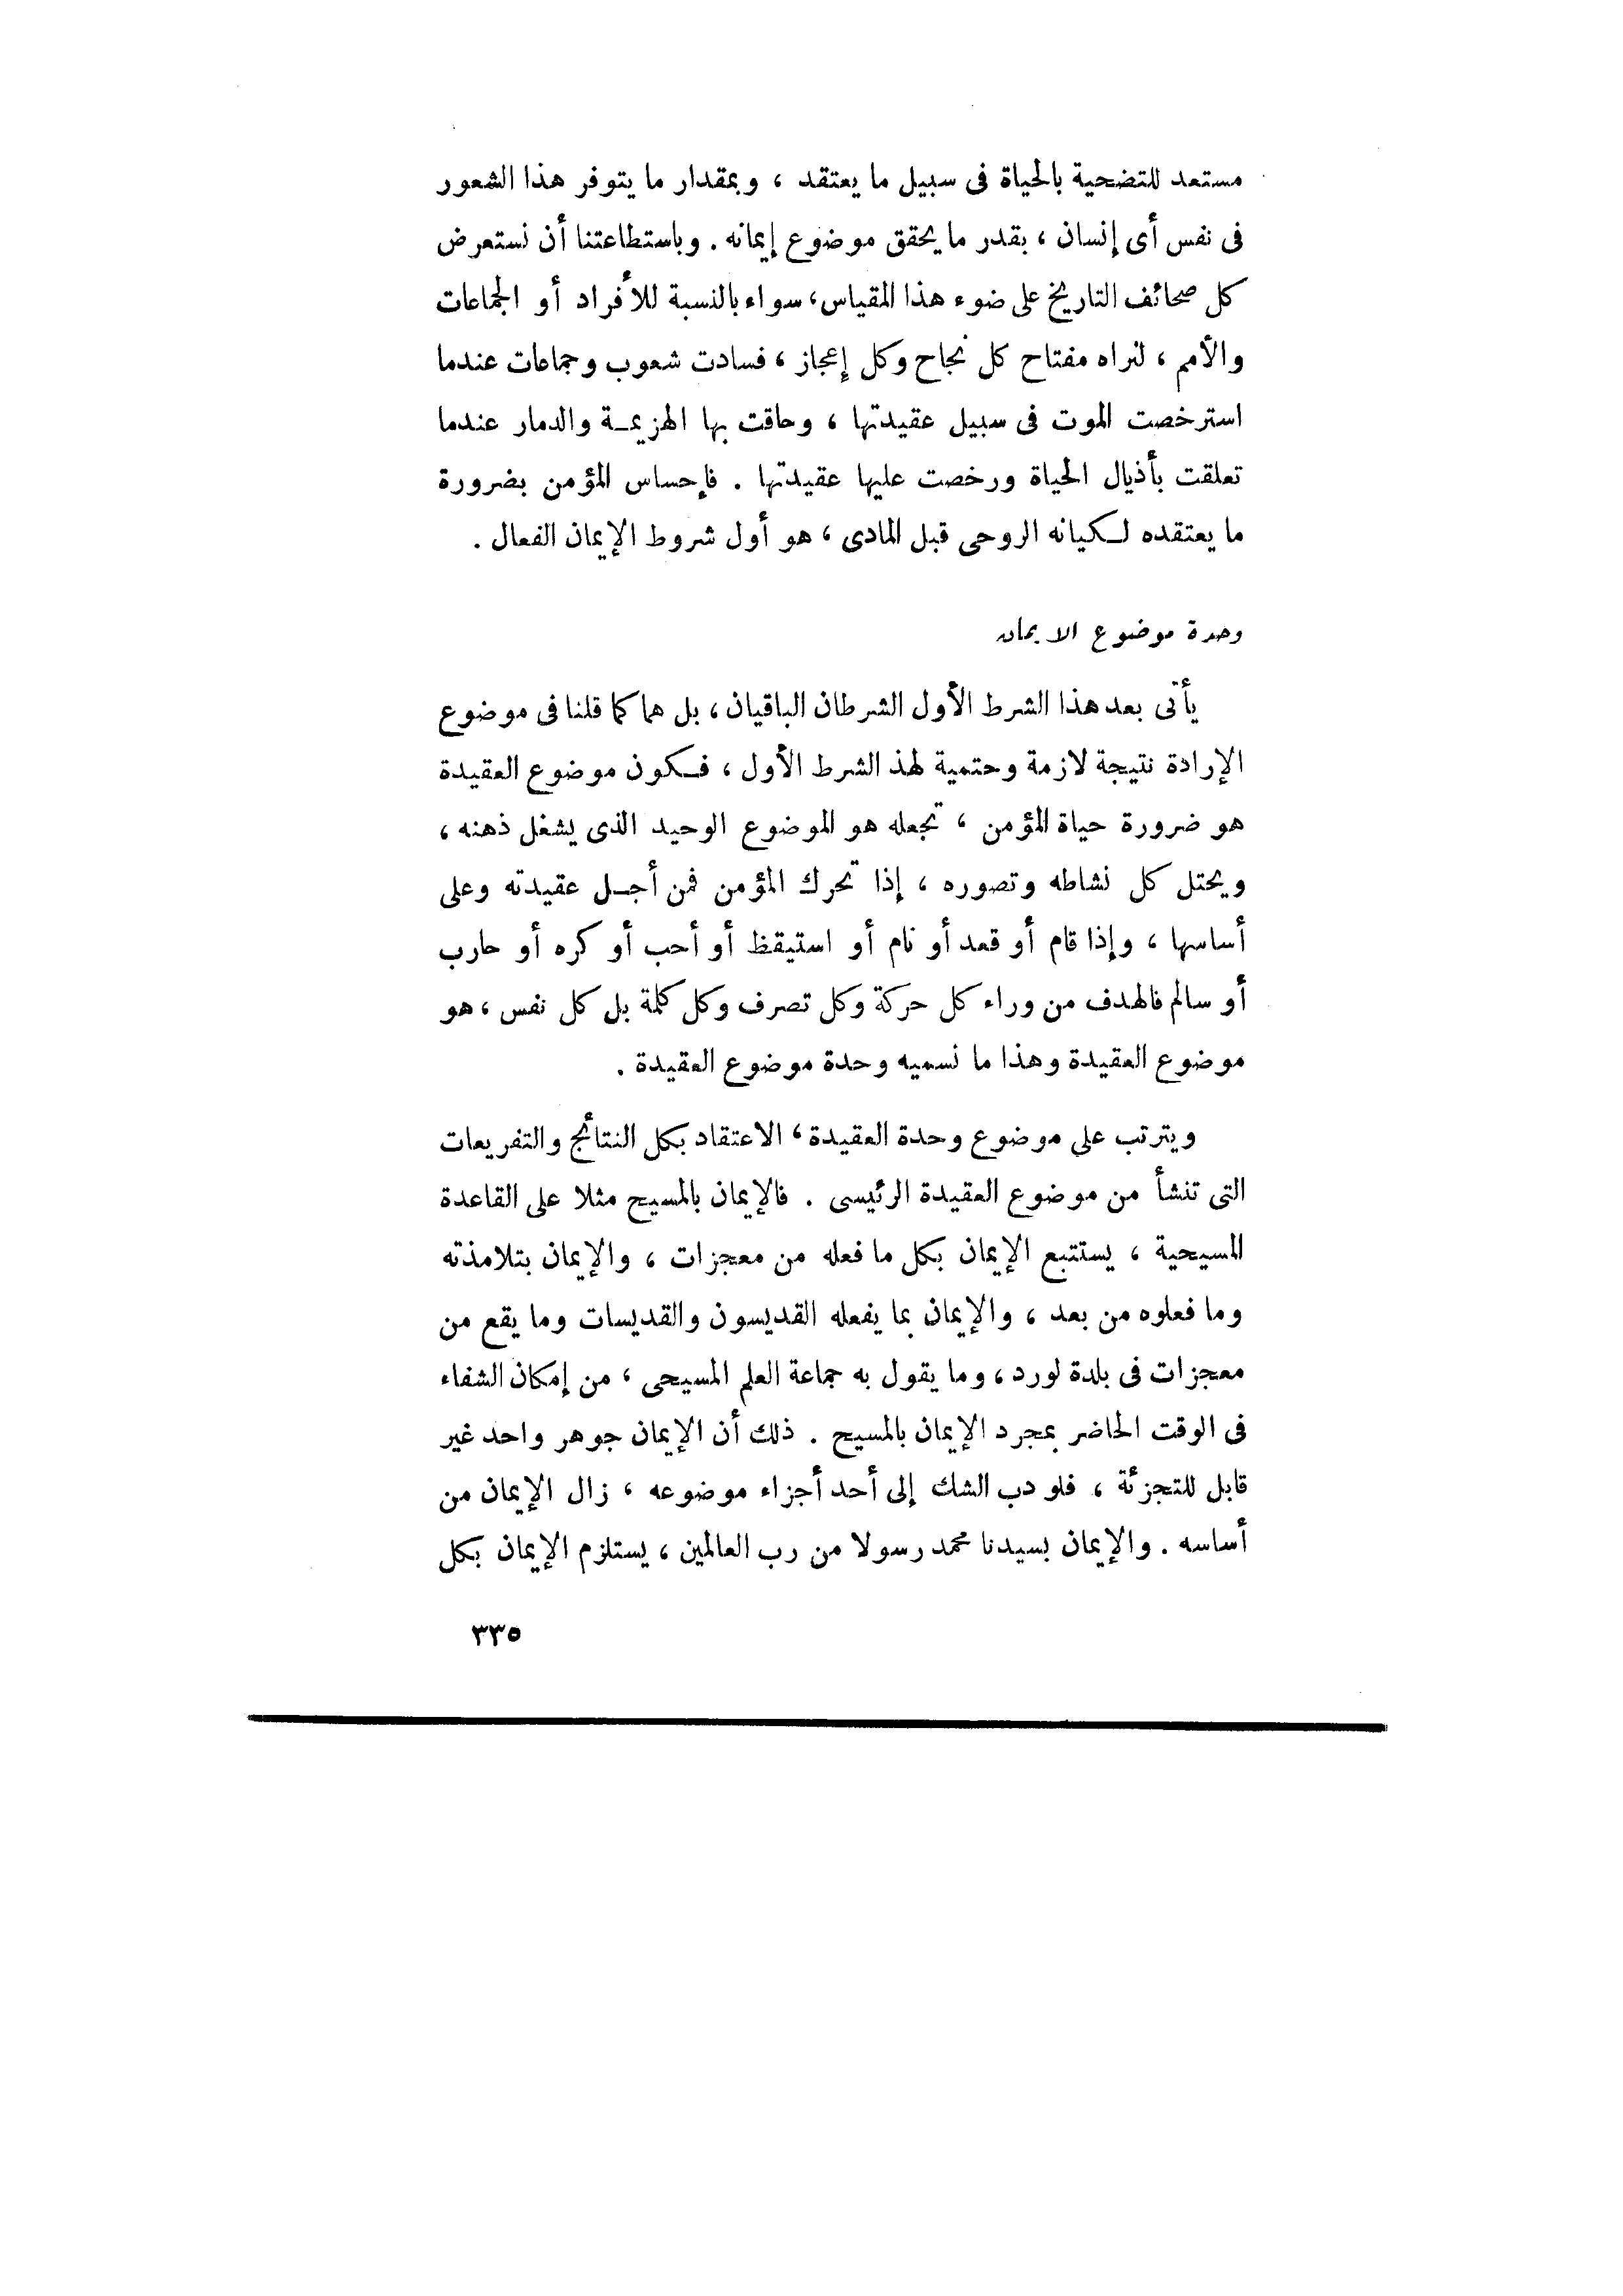 مستعد للتضحية بالحياة فى سبيل ما يعتقد ، وبمقدار ما يتوفر هذا الشعور
فى نفس أى إنسان ، بقدر ما يحقق موضوع إيمانه . وباستطاعتنا أن نستعرض
كل صحائف التاريخ على ضوء هذا المقياس، سواء بالنسبة للأفراد أو الجماعات
والأمم ، لنراه مفتاح كل نجاح وكل إعجاز ، فسادت شعوب وجماعات عندما
استرخصت الموت فى سبيل عقيدتها ، وحاقت بها الهزيمة والدمار عندما
تعلقت بأذيال الحياة ورخصت عليها عقيدتها . فإحساس المؤمن بضرورة
ما يعتقده لكيانه الروحى قبل المادى ، هو أول شروط الإيمان الفعال .
وحدة موضوع الايمان
يأتى بعد هذا الشرط الأول الشرطان الباقيان ، بل هما كما قلنا فى موضوع
الإرادة نتيجة لازمة وحتمية لهذ الشرط الأول ، فكون موضوع العقيدة
هو ضرورة حياة المؤمن ، تجعله هو الموضوع الوحيد الذى يشغل ذهنه ،
ويحتل كل نشاطه وتصوره ، إذا تحرك المؤمن فمن أجل عقيدته وعلى
أساسها ، وإذا قام أو قعد أو نام أو استيقظ أو أحب أو كره أو حارب
أو سالم فالهدف من وراء كل حركة وكل تصرف وكل كلمة بل كل نفس ، هو
موضوع العقيدة وهذا ما نسميه وحدة موضوع العقيدة .
ويترتب على موضوع وحدة العقيدة ، الاعتقاد بكل النتائج والتفريعات
التى تنشأ من موضوع العقيدة الرئيسى . فالإيمان بالمسيح مثلا على القاعدة
المسيحية ، يستتبع الإيمان بكل ما فعله من معجزات ، والإيمان بتلامذته
وما فعلوه من بعد ، والإيمان بما يفعله القديسون والقديسات وما يقع من
معجزات فى بلدة لورد ، وما يقول به جماعة العلم المسيحى ، من إمكان الشفاء
فى الوقت الحاضر بمجرد الإيمان بالمسيح . ذلك أن الإيمان جوهر واحد غير
قابل للتجزئة ، فلو دب الشك إلى أحد أجزاء موضوعه ، زال الإيمان من
أساسه . والإيمان بسيدنا محمد رسولا من رب العالمين ، يستلزم الإيمان بكل
٣٣٥